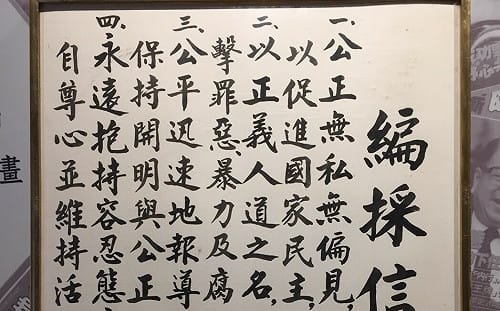 編採信
一、公正無私無偏見，
以促進國家民主，
二、以正義人道之名，
擊罪惡、暴力及腐
三、公平迅速地報導
保持開明與公正
四、永遠抱持容忍態
自尊心並維持活
畫